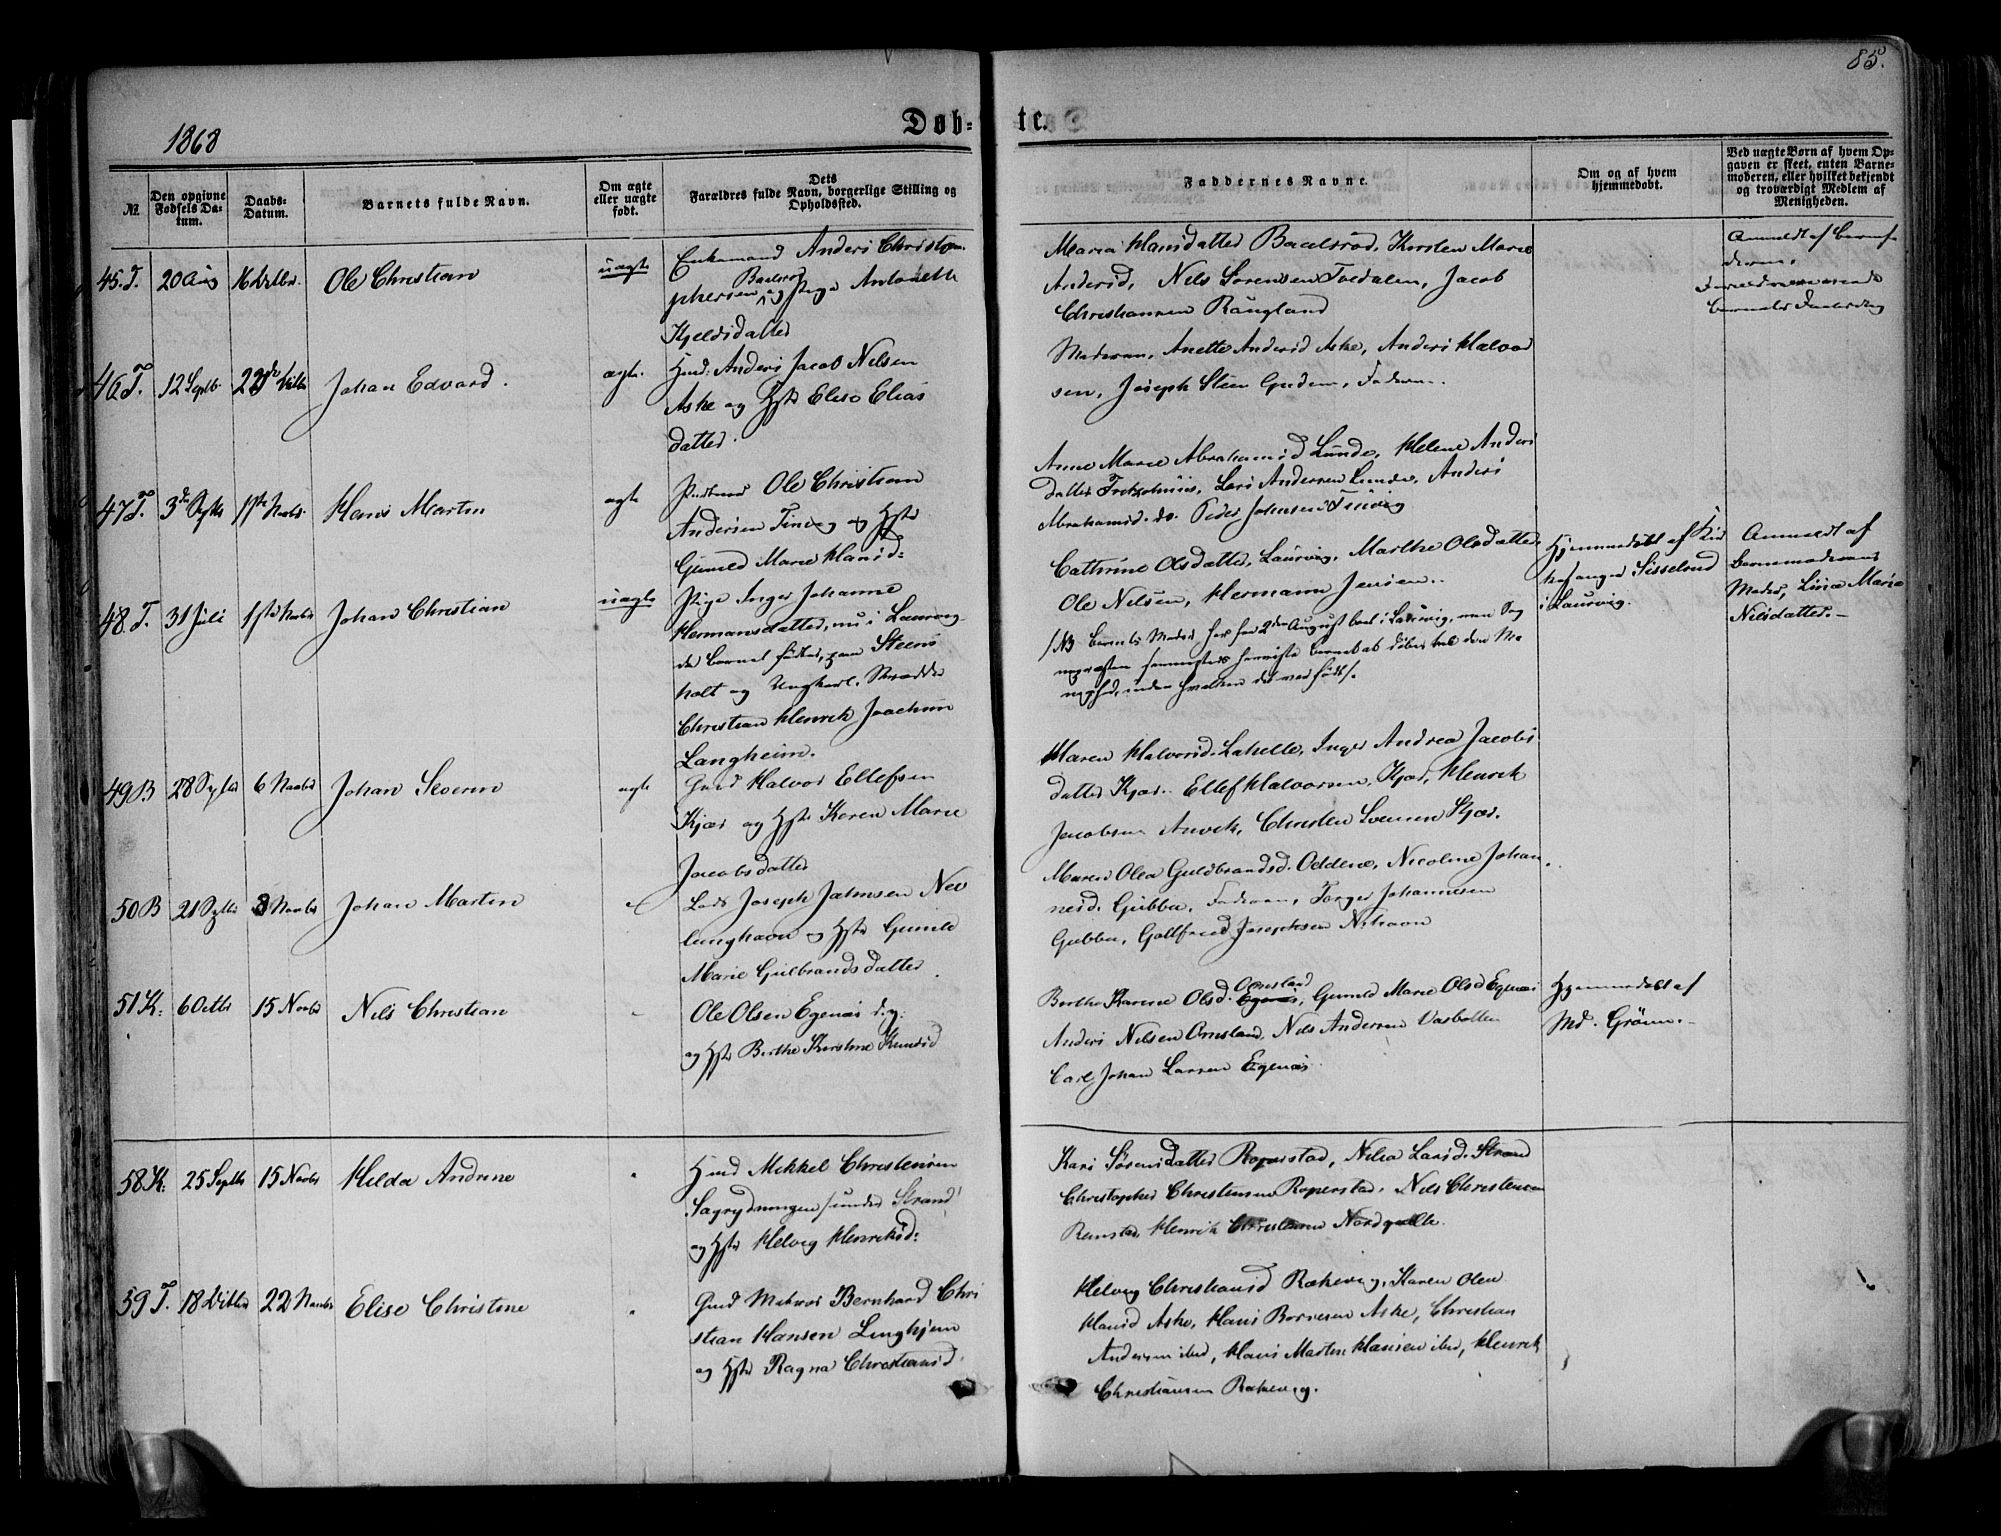 85.
1868
Døb-
te.
No.
Den opgivne Fødsels Datum.
Daabs-Datum.
Barnets fulde Navn.
Om ægte eller uægte født.
Dets Forældres fulde Navn, borgerlige Stilling og Opholdssted.
Faddernes Navne.
Om og af hvem hjemmedøbt.
Ved uægte Børn af hvem Opgaven er skeet, enten Barnemoderen, eller hvilket bekjendt og troværdigt Medlem af Menigheden.
45. T. 20 Aug 16 Octbr. Ole Christian uægte
Enkemand Anders Christo-
phersen Baelsrød og Pige Antonette
Kjeldsdatter
Maria Hansdatter Baelsrød, Kersten Marie
Andersd, Nils Sørensen Tvedalen, Jacob
Christiansen Raugland
Anmeldt af Barnefaderen.
46 T. 12 Septb Johan Edvard. ægte.
Gmd: Anders Jacob Nilsen
Aske og Hst Elise Elias
datter.
Moderen, Anette Andersd Aske, Anders Halvor
sen, Joseph Steen Gudem, Faderen.
47 T. 3de Septb 1ste Novbr Hans Martin ægte
Ole Christian
Andersen Tinvig og Hst
Gunild Marie Hansd:
Anne Marie Abrahamsd Lunde, Helene Anders
datter Fritzøhuus, Lars Andersen Lunde, Anders
Abrahams. do. Peder Johnsen Tinvig
48. T. 31 Juli 1ste Novbr Johan Christian uægte
Pige Inger Johanne
Hermansdatter, nu i Laurvig
da Barnet fødtes, paa Steens
holt og Ungkarl, Skrædder
Christian Henrik Joachim
Langheim.
Cathrine Olsdatter, Laurvig, Marthe Olsdatter,
Ole Nilsen, Hermann Jensen.
/NB Barnets Moder har fra 2den August boet i Laurvig, men Sog
nepræsten
Hjemmedøbt af
Sisselrud
i Laurvig.
Anmeldt af
Barnemoderens
Moder, Lina Marie
Nilsdatter.
49 B 28 Septbr 6 Novbr Johan Severin ægte
Gmd Halvor Ellefsen
Kjær og Hst Karen Marie
Jacobsdatter
Maren Halvorsd. Lakelle, Inger Andrea Jacobs
datter Kjær. Ellef Halvorsen, Kjær, Henrik
Jacobsen Anvik, Christen Svensen Kjær.
50 B 21 Septbr 8 Novbr Johan Martin
Lods Joseph Jahnsen Nev
lunghavn og Hst Gunild
Marie Gulbrandsdatter
Maren Olea Guldbrandsd. Oddene, Nicoline Johan
nesd. Gubba, Faderen, Torger Johannesen
Gubba, Gottfried Josephsen Nilsavn
51 K. 6 Octbr 15 Novbr Nils Christian
Ole Olsen Egenæs d.y.
og Hst Berthe Kirstine Knudsd
Berthe Karine Olsd. Omsland, Gunild Marie Olsd Egenæs
Anders Nilsen Omsland, Nils Andersen Vasbotten
Carl Johan Larsen Egenæs
Hjemmedøbt af
Md. Grønn.
58 K. 25 Septbr 15 Novbr Helda Andrine
Gmd Mikkel Christensen
Sagrydningen /under Strand/
og Hst Helvig Henriksd:
Kari Sørensdatter Roperstad, Nilia Larsd. Strand
Christopher Christensen Roperstad, Nils Christensen
Henrik Christensen Nordquelle.
59 T. 18 Octbr 22 Novbr Elise Christine
Gmd Matros Bernhard Chri
stian Hansen Lunghjem
og Hst Ragna Christiansd
Helvig Christiansd Rækevig, Karen Olea
Hansd Aske, Hans Borresen Aske, Christian
Andersen ibid, Hans Martin Hansen ibid, Henrik
Christiansen Rækevig.